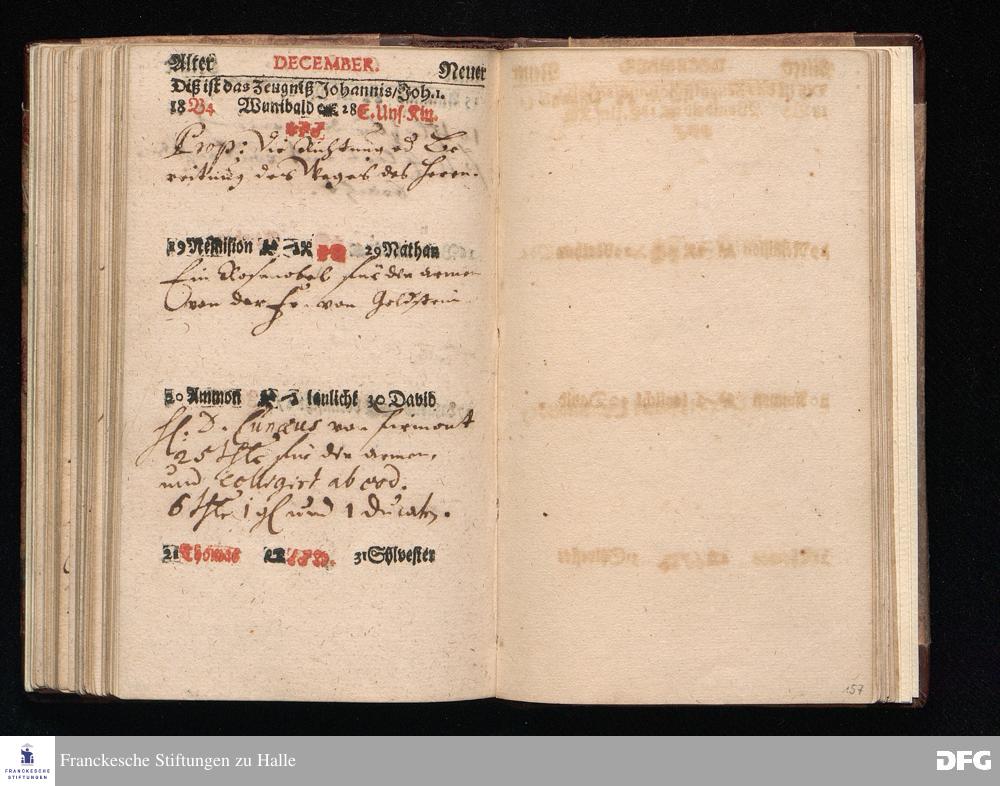 Alter DECEMBER. Neuer
Diß ist das Zeugniß Johannis/Joh.1.
18 B4 Wunibald 28 E. Uns. Kin.
Prop: Die Richtung od Be-
reitung des Weges des Herrn.
19 Nemision 29 Nathan
Ein Rosenobel für die armen
von der Fr. von Geldstein
20 Ammon laulicht 30 David
H. D. Cunæus von
25 thlr für die armen,
und colligirt ab eod.
6 thlr 1 gl und 1 Ducaten.
21 Thomas 31 Sylvester
157
FRANCKESCHE STIFTUNGEN
Franckesche Stiftungen zu Halle
DFG